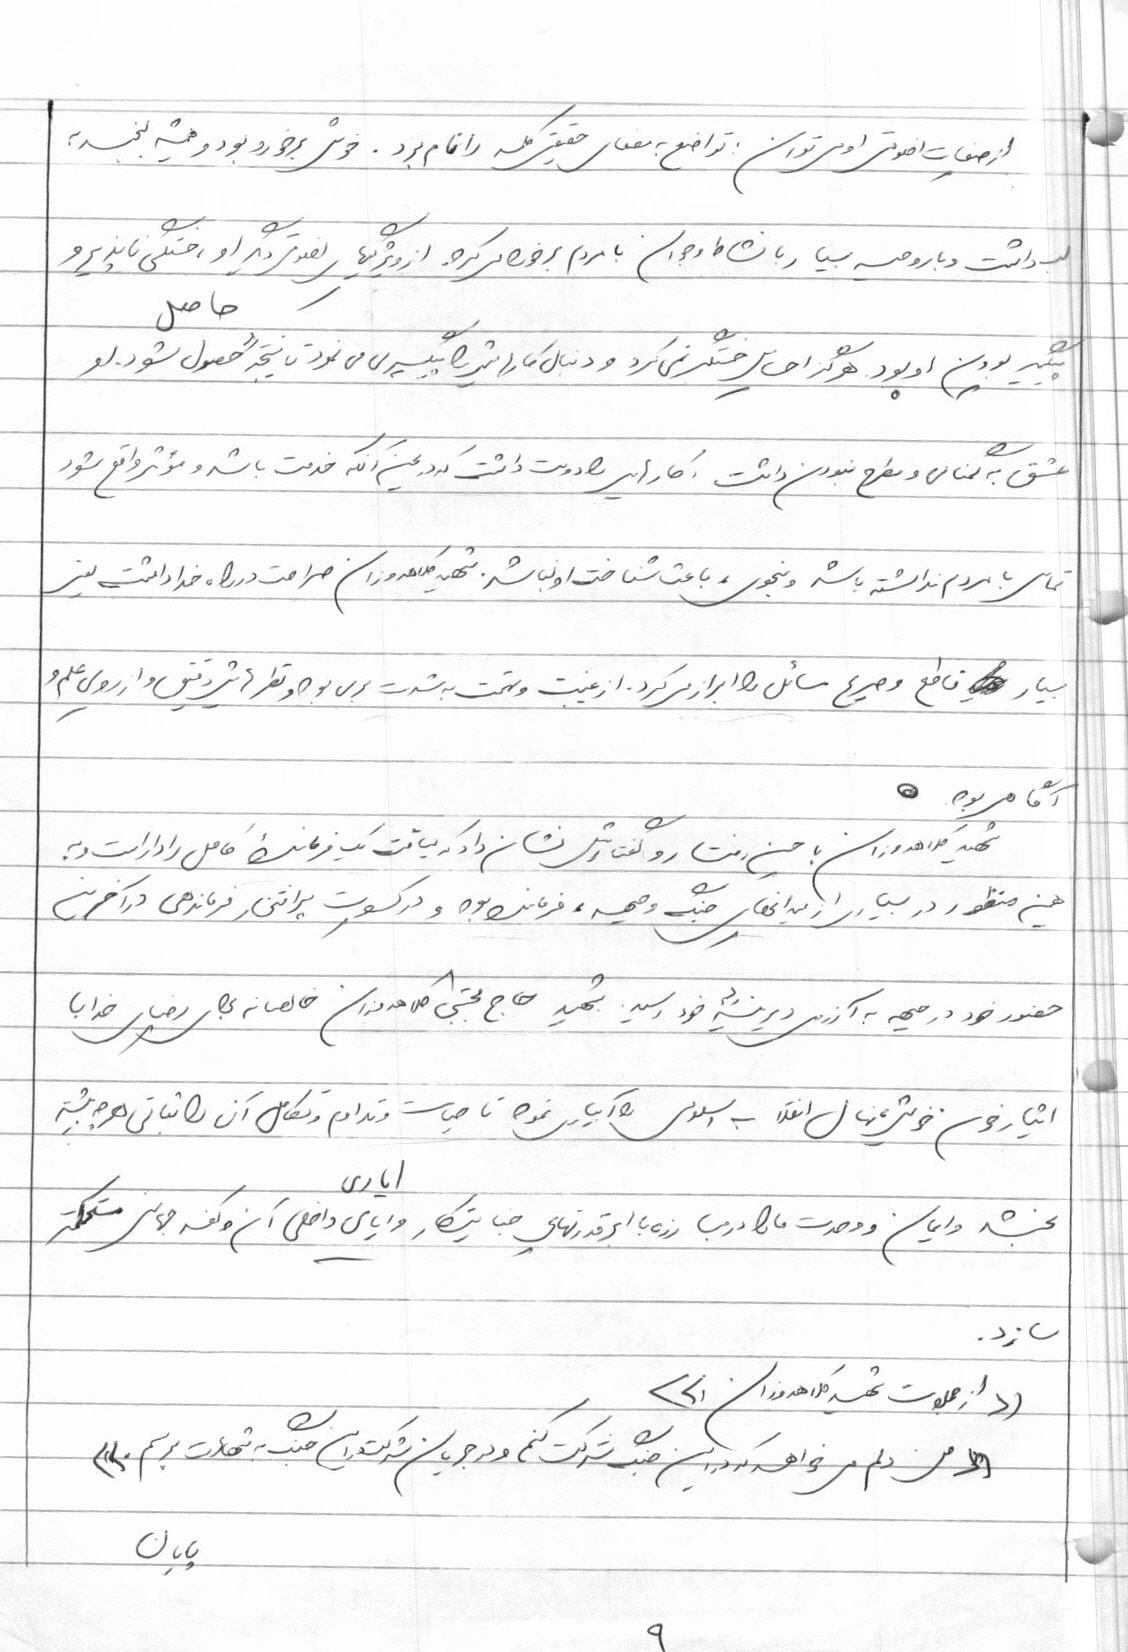 از صفات اخلاقی او می توان : تواضع به معنای حقیقی کلمه را نام برد . خوش برخورد بود و همیشه لبخند به
لب داشت و با روحیه بسیار با نشاط و جوان با مردم برخورد می کرد. از ویژگیهای اخلاقی دیگر او ، خستگی ناپذیر و
حاصل
پیگیر بودن او بود. هرگز احساس خستگی نمی کرد و دنبال کارهایش را پیگیری می نمود تا نتیجه حصول شود. او
عشق به گمنامی و مطرح نبودن داشت . کارهایی را دوست داشت که در عین آنکه خدمت باشد و مؤثر واقع شود
تماس با مردم نداشته باشد و بنحوی ، باعث شناخت او نباشد. شهید کلاهدوزان صراحت در راه خدا داشت یعنی
بسیار قاطع و صریح مسائل را ابراز می کرد. از غیبت و تهمت به شدت بری بود و نظرهایش دقیق و از روی علم و
آگاهی بود.
شهید کلاهدوزان با حسن رفتار و گفتارش نشان داد که لیاقت یک فرمانده کامل را داراست و به
همین منظور در بسیاری از میدانهای جنگ و جبهه ، فرمانده بود و در کسوت پرافتخار فرماندهی در آخرین
حضور خود در جبهه به آرزوی دیرینه خود رسید. شهید حاج مجتبی کلاهدوزان خالصانه برای رضای خدا با
ایثار خون خویش نهال انقلاب اسلامی را آبیاری نمود تا حیات و تداوم و تکامل آن را ثباتی هر چه بیشتر
ایادی
بخشد و ایمان و وحدت ما را در مبارزه با ابرقدرتهای جنایتکار و ایادی داخلی آن و کفر جهانی مستحکمتر
سازد.
(( از جملات شهید کلاهدوزان ))
(( من دلم می خواهد که در این جنگ شرکت کنم و در جریان شرکت در این جنگ به شهادت برسم . ))
پایان
۹